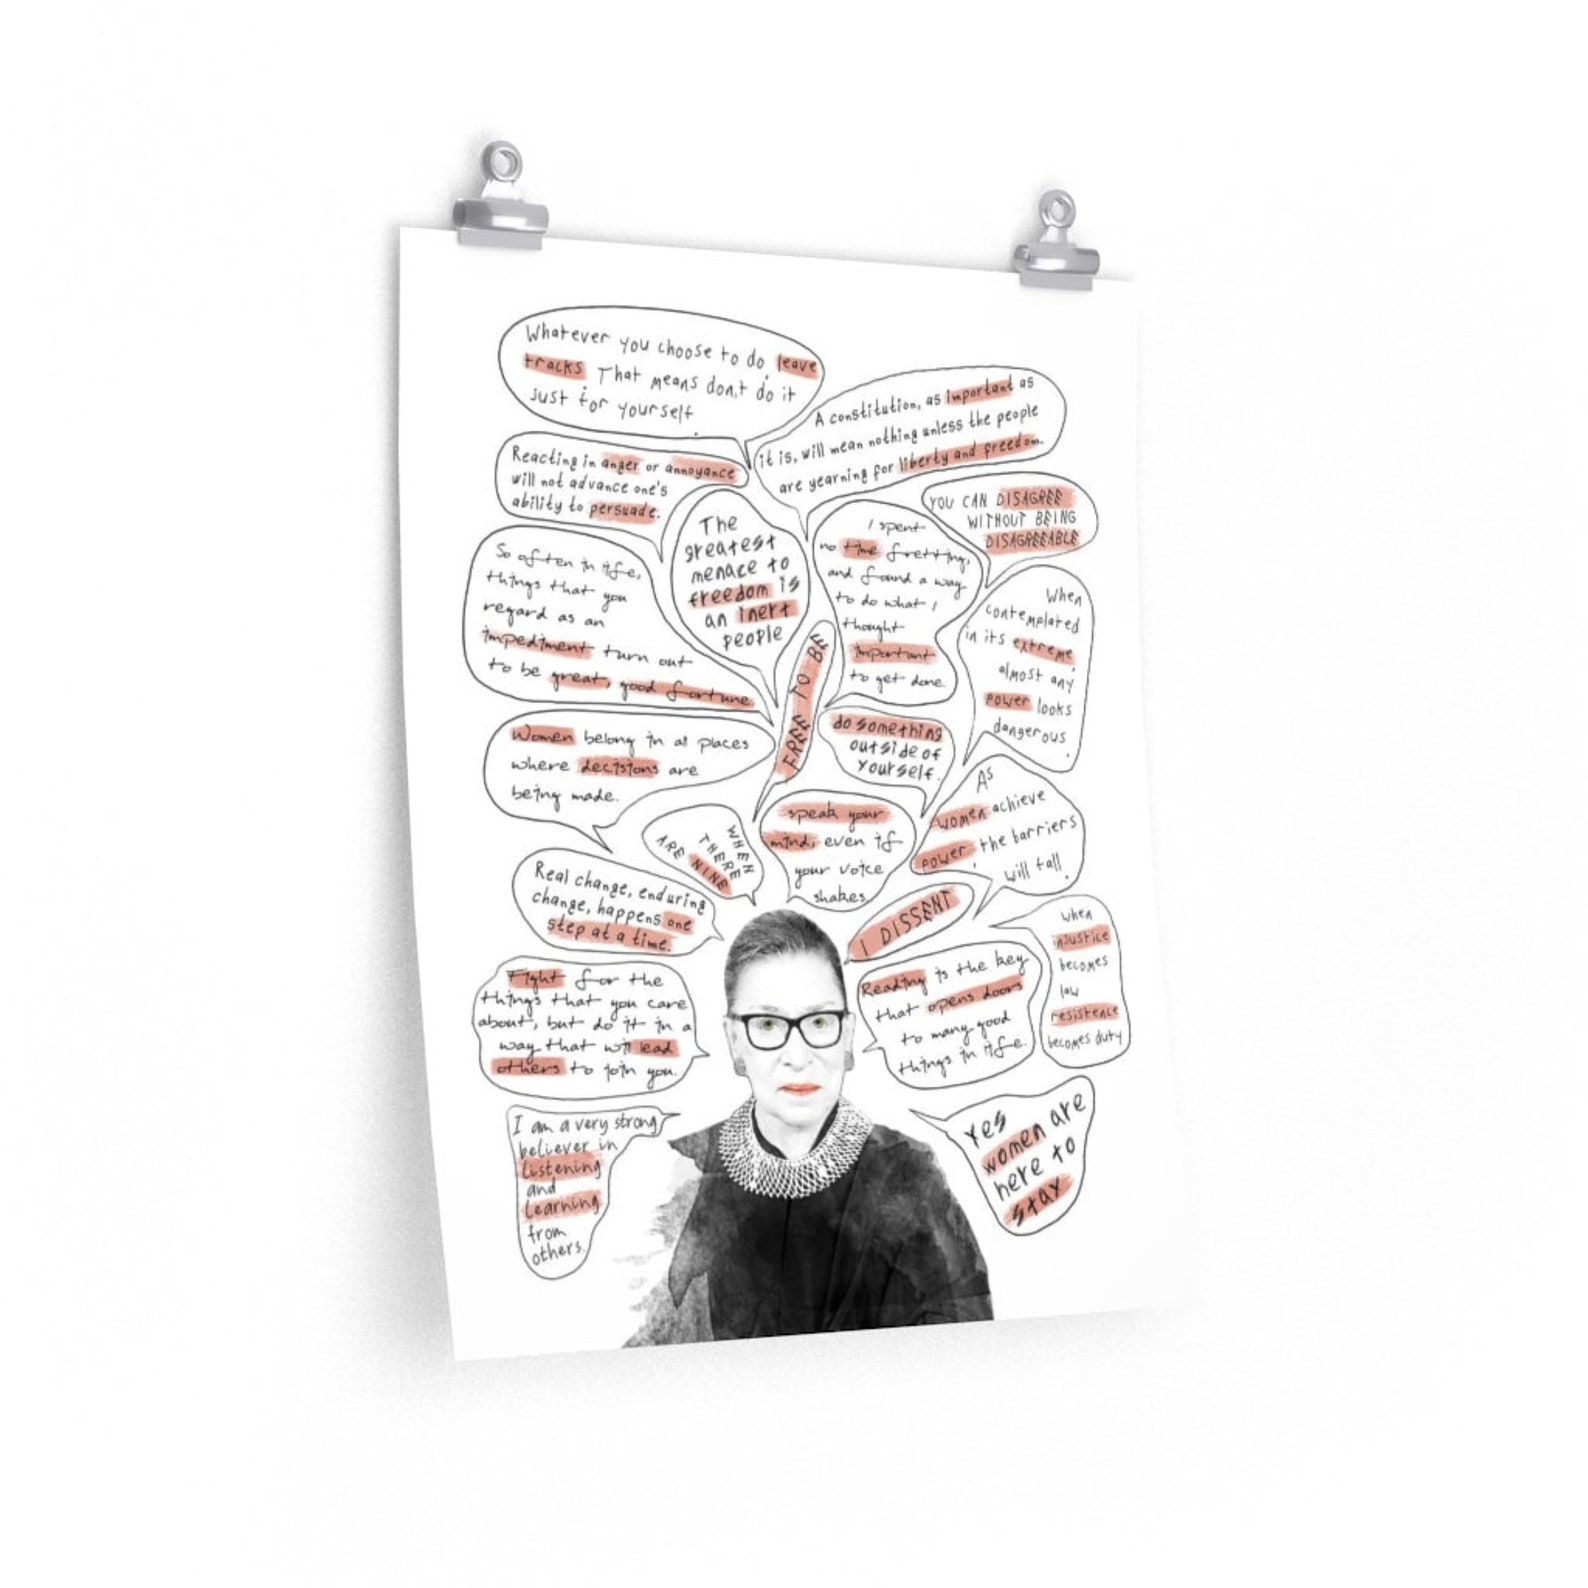 Whatever you choose to do, leave
tracks. That means don,t do it
just for yourself.
A constitution, as important as
it is, will mean nothing unless the people
are yearning for liberty and freedom.
Reacting in anger or annoyance
will not advance one's
ability to persuade.
YOU CAN DISAGREE
WITHOUT BEING
DISAGREEABLE
The
greatest
menace to
freedom is
an inert
people
I spent
no time fretting,
and found a way
to do what I
thought
important
to get done.
So often in life,
things that you
regard as an
impediment turn out
to be great, good fortune.
When
contemplated
in its extreme,
almost any
power looks
dangerous.
FREE TO BE
do something
outside of
yourself.
Women belong in all places
where decisions are
being made.
As
women achieve
power, the barriers
will fall.
speak your
mind, even if
your voice
shakes.
WHEN
THERE
ARE NINE
Real change, enduring
change, happens one
step at a time.
I DISSENT
When
injustice
becomes
law
resistence
becomes duty
Reading is the key
that opens doors
to many good
things in life.
Fight for the
things that you care
about, but do it in a
way that will lead
others to join you.
I am a very strong
believer in
listening
and
learning
from
others.
Yes
women are
here to
stay